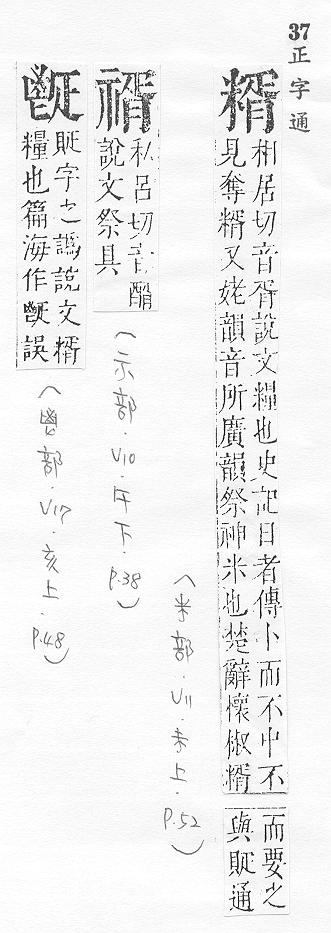 37
正字通
糈
相居切音胥說文糧也史記日者傳卜而不中不
見奪糈又姥韻音所廣韻祭神米也楚辭懷椒糈
而要之
與 通
(米部．V11．未上．P.52)
私呂切音醑
說文祭具
(示部．V10．午下．P.38)
字之譌說文糈
糧也篇海作 誤
(鬯部．V17．亥上．P.48)